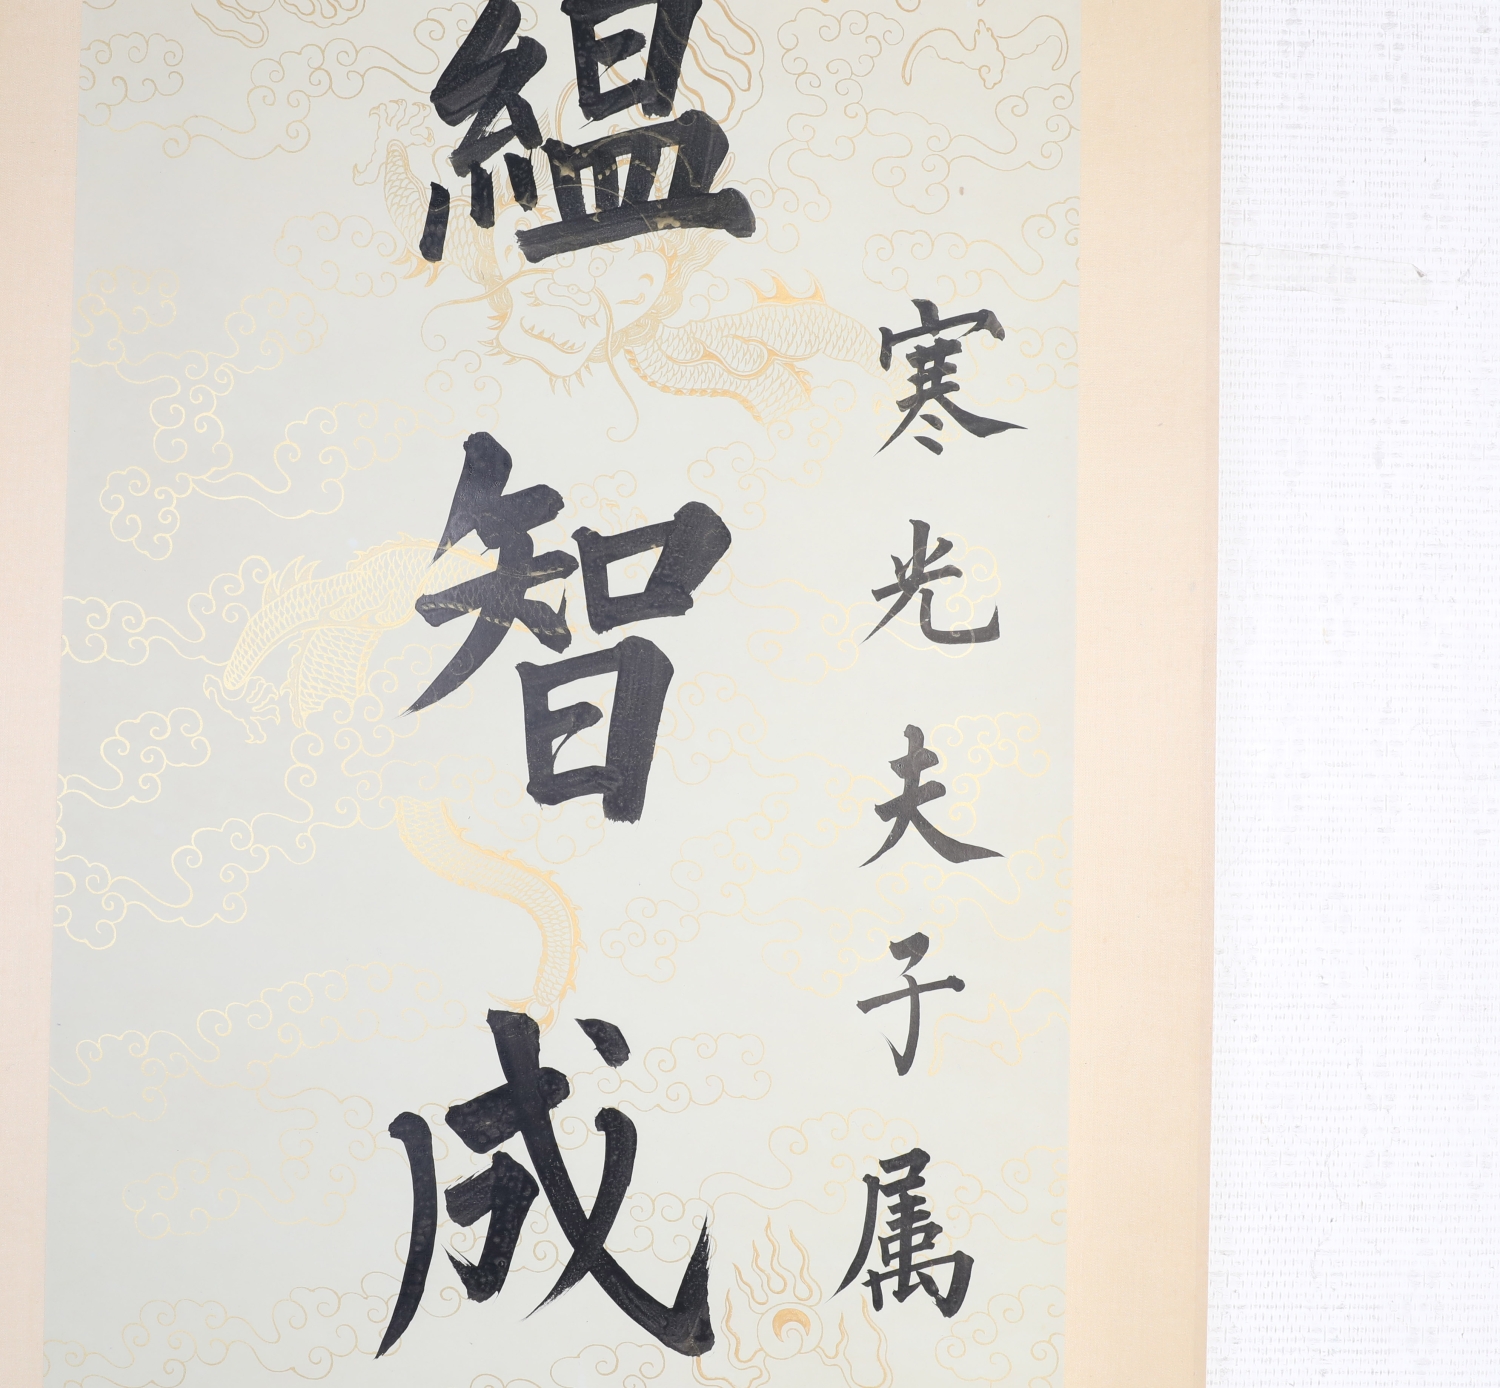 寒光夫子属
緼智成